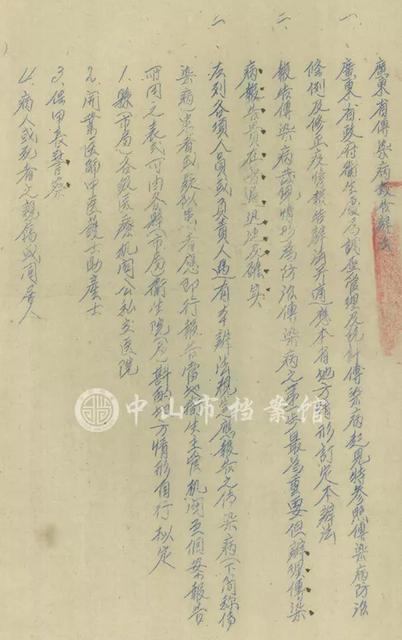 廣東省傳染病報告辦法
一、廣東省政府衛生處為調查管理及統計傳染病起見特參照傳染病防治
條例及修正疫情報告辦法并適應本省地方情形訂定本辦法
二、報告傳染病疫師情形為防治傳染病之第一步最為重要但辦理傳染
病報告貴在普遍迅速及確實
三、左列各項人員或負責人遇有本辦法規定應報告之傳染病(下簡稱傳
染病)患者或疑似患者應即行報告當地衛生主管机関至個案報告
所用之表式可由各縣市局衛生院処斟酌地方情形自行擬定
1、縣市局各級医療机関公私立医院
2、開業医師中医護士助產士
3、保甲長警察
4、病人或死者之親屬或同居人
中山市档案馆